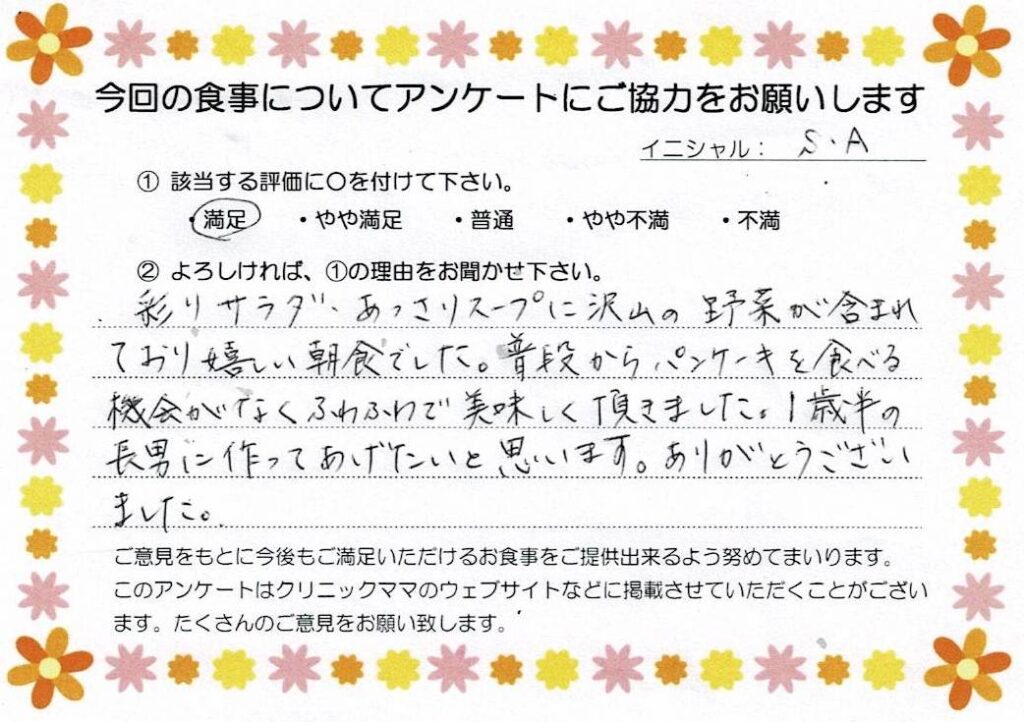 今回の食事についてアンケートにご協力をお願いします
イニシャル： S.A
① 該当する評価に〇を付けて下さい。
・満足 ・やや満足 ・普通 ・やや不満 ・不満
② よろしければ、①の理由をお聞かせ下さい。
彩りサラダ・あっさりスープに沢山の野菜が含まれ
ており嬉しい朝食でした。普段からパンケーキを食べる
機会がなくふわふわで美味しく頂きました。1歳半の
長男に作ってあげたいと思います。ありがとうござい
ました。
ご意見をもとに今後もご満足いただけるお食事をご提供出来るよう努めてまいります。
このアンケートはクリニックママのウェブサイトなどに掲載させていただくことがござい
ます。たくさんのご意見をお願い致します。